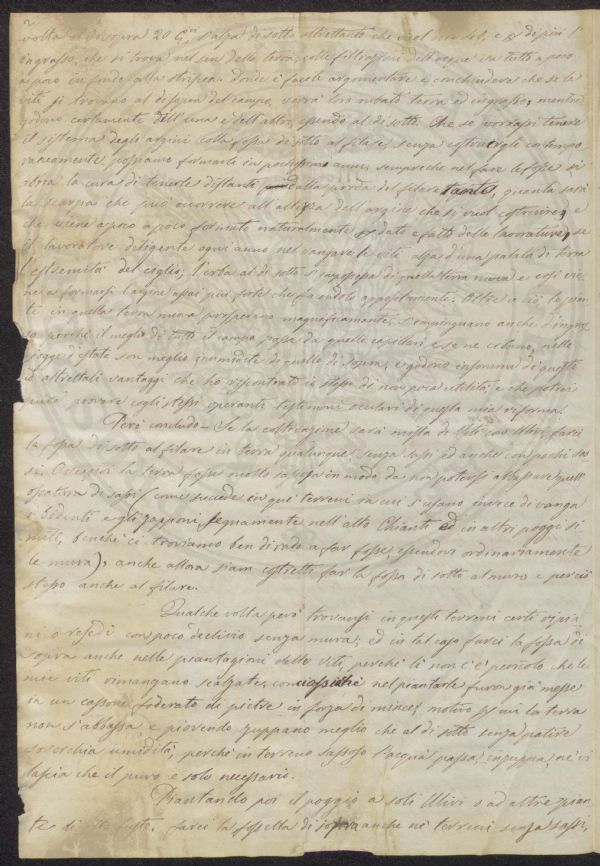 volta al di sopra 20 C.ni s'alza di sotto altrettanto che vuol dire sol, e di più l'
ingrasso, che si trova nel sen della terra, colle filtrazioni dell'acque va tutto a poco
a poco in fondo alla strisca. Donde è facile argomentare e conchiudere che se le
viti si trovano al disopra del campo, verrà loro rubato terra ed ingrasso, mentre
godono certamente dell'una e dell'altro, essendo al di sotto. Che se vorrassi tenere
il sistema degli argini colla fossa di sotto al filare, senza costruirgli contempo
raneamente possiamo formarli in pochissimi anni, sempreche nel fare le fosse si
abbia la cura di tenerle distanti dalla proda del filare tanto, quanta sarà
la scarpa che può occorrere all'altezza dell'argine che si vuol costruire, e
che viene a poco a poco formato naturalmente e dato e fatto delle lavorature, se
il lavoratore diligente ogni anno nel vangare le viti alza d'una palata di terra
l'estremità del ciglio, l'erta al di sotto s'ingrossa di quella terra nuova e così vie
ne a formarsi l'argine assai più forte che facendolo appostatamente. Oltre a ciò le pian
te in quella terra nuova prosperano magnificamente, s'impinguano anche d'ingras
so perchè il meglio di tutto il campo passa da quelle capillari e se ne cibano, nelle
piogge d'estate son meglio innumidite di quelle di sopra, e godono insomma di questi
ed altrettali vantaggi che ho riscontrato io stesso di non poca utilità, e che potrei
anche provare cogli stessi operanti testimoni oculari di questa mia riforma.
Però concludo – Se la coltivazione sarà mista di Viti con Ulivi, farei
la fossa di sotto al filare in terra qualunque senza sassi ed anche con pochi sas
si. O essendo la terra forse molto sassosa in modo da non potersi abbassare quell'
ossatura di sassi (come succede in que' terreni in cui s'usano invece di vanga
i bidenti e gli zapponi segnamente nell'alto Chianti ed in altri poggi si
mili, benchè ci troviamo ben di rado a far fosse essendovi ordinariamente
le mura), anche allora siam costretti far la fossa di sotto al muro e perciò
stesso anche al filare.
Qualche volta però trovansi in questi terreni certi ripia
ni o resedi con poco declivio senza mura; ed in tal caso farei la fossa di
sopra anche nelle piantagioni delle Viti, perchè lì non c'è pericolo che le
mie viti rimangano scalzate, conciossiachè nel piantarle furon già messe
in un cassone foderato di pietre in forza di mine; motivo per cui la terra
non s'abbassa e piovendo zuppano meglio che al di sotto senza patire
soverchia umidità, perchè in terreno sassoso l'acqua passa, inzuppa, nè vi
lascia che il puro e solo necessario.
Piantando poi il poggio a soli Ulivi o ad altre pian
te di alto fusto, farei la fossetta di sopra anche ne' terreni senza sassi,